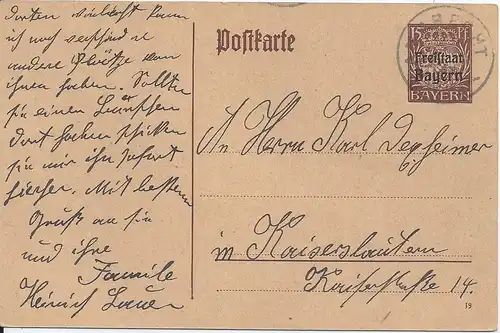 dorten Vielleicht kann
ich noch verschiedene
andere Plätze von
ihnen haben. Sollten
sie einen
dort haben schicken
sie mir ihn sofort
hierher. Mit besten
Gruß an sie
und ihre
Familie
Heinrich Lauer
Postkarte
15 Pf
Freistaat
Bayern
BAYERN
An Herrn Karl Degheimer
in Kaiserslautern
Kaiserstraße 14.
19